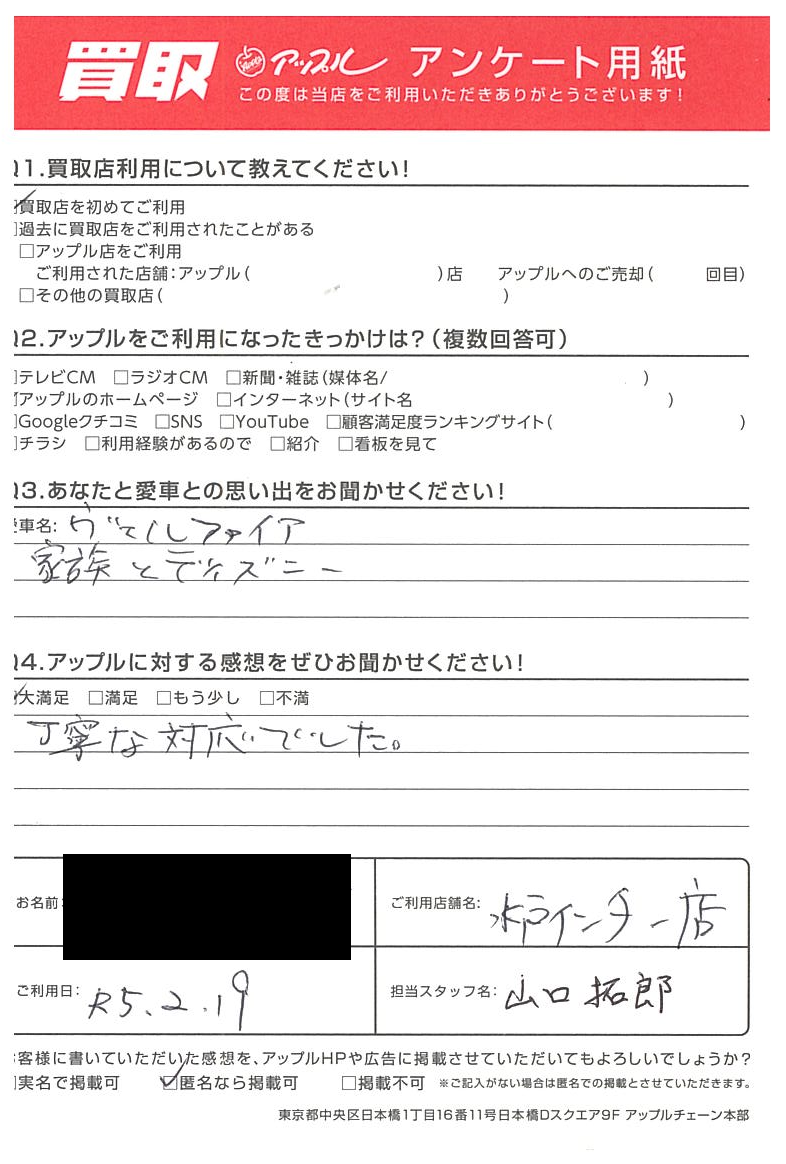 買取 アップル アンケート用紙
この度は当店をご利用いただきありがとうございます!
Q1.買取店利用について教えてください!
☑買取店を初めてご利用
□過去に買取店をご利用されたことがある
□アップル店をご利用
ご利用された店舗:アップル( )店 アップルへのご売却( 回目)
□その他の買取店( )
Q2.アップルをご利用になったきっかけは?(複数回答可)
□テレビCM □ラジオCM □新聞・雑誌(媒体名/ )
☑アップルのホームページ □インターネット(サイト名 )
□Googleクチコミ □SNS □YouTube □顧客満足度ランキングサイト( )
□チラシ □利用経験があるので □紹介 □看板を見て
Q3.あなたと愛車との思い出をお聞かせください!
愛車名: ヴェルファイア
家族とディズニー
Q4.アップルに対する感想をぜひお聞かせください!
☑大満足 □満足 □もう少し □不満
丁寧な対応でした。
お名前:
ご利用店舗名: 水戸インター店
ご利用日: R5.2.19
担当スタッフ名: 山口拓郎
お客様に書いていただいた感想を、アップルHPや広告に掲載させていただいてもよろしいでしょうか?
□実名で掲載可 ☑匿名なら掲載可 □掲載不可 ※ご記入がない場合は匿名での掲載とさせていただきます。
東京都中央区日本橋1丁目16番11号日本橋Dスクエア9F アップルチェーン本部